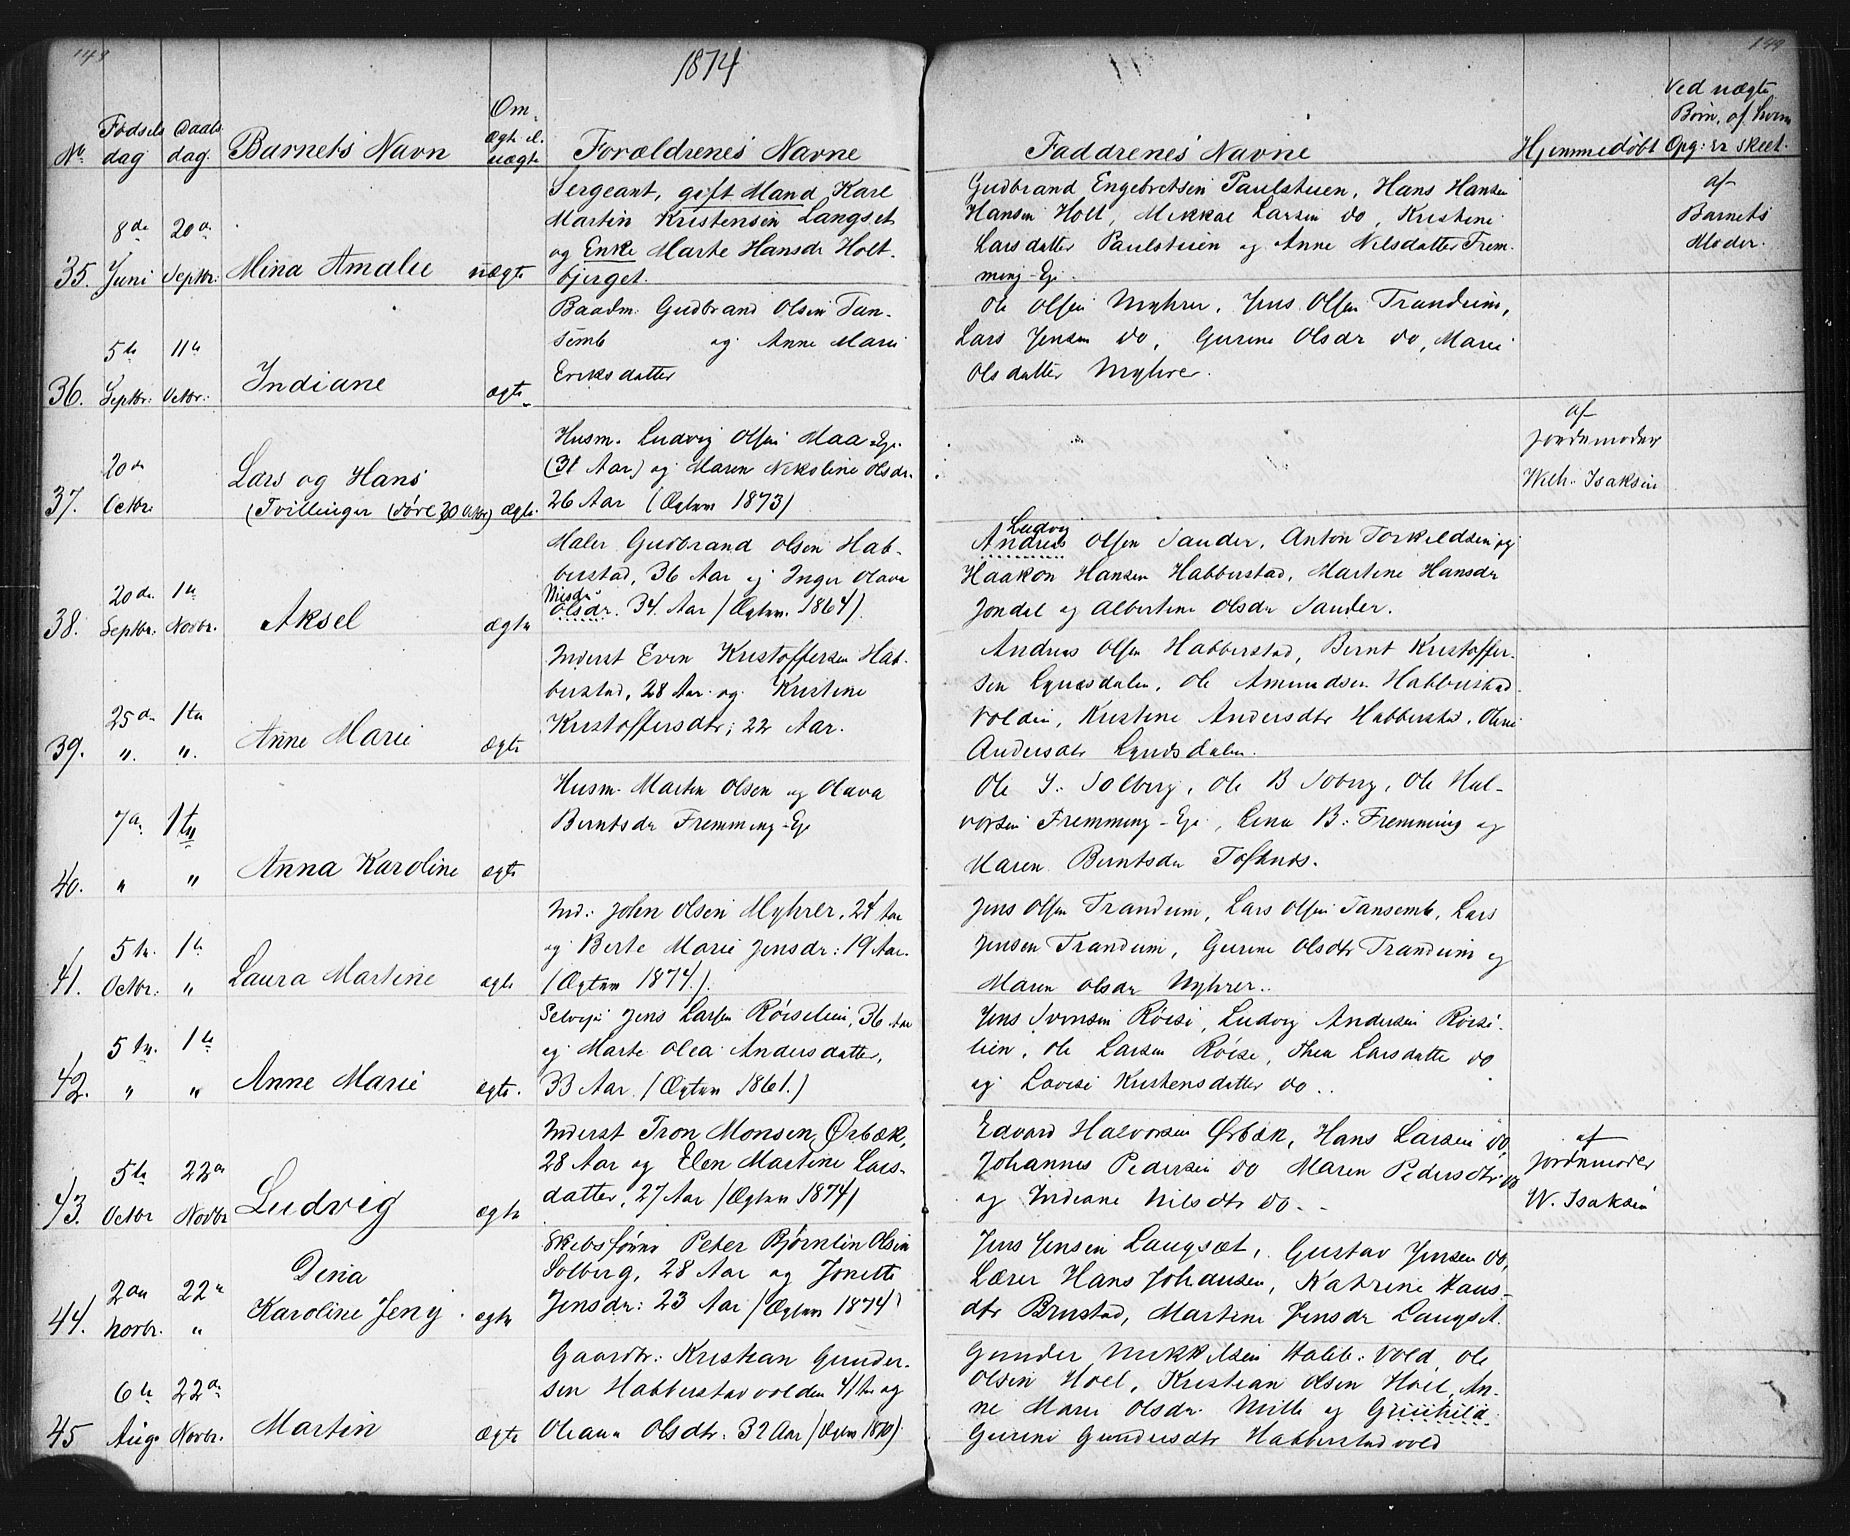 148
1874
149
No. Fødsels dag Daabs dag. Barnets Navn Om ægte el. uægte Forældrenes Navne Faddrenes Navne Hjemmedøbt Ved uægte Børn, af hvem Opg: er skeet.
35. 8de Juni 20de Septbr: Mina Amalie uægte
Sergeant, gift Mand Karl
Martin Kristensen Langset
og Enke Marte Hansdr Holt-
bjerget.
Gudbrand Engebretsen Paulstuen, Hans Hansen
Hansen Holt, Mikkal Larsen do, Kristine
Larsdatter Paulstuen og Anne Nilsdatter Frem-
ming-Eje.
af
Barnets
Moder.
36. 5te Septbr: 11te Octbr: Indiane ægte
Baadm. Gudbrand Olsen Tan-
semb og Anne Marie
Eriksdatter
Ole Olsen Myhrer, Jens Olsen Trandum,
Lars Jensen do, Gurine Olsdr do, Marie
Olsdatter Myhrer.
37. 20de Octbr. Lars og Hans
(Tvillinger (døde 20 Octbr) ægte.
Husm. Ludvig Olsen Maa-Eje
(31 Aar) og Maren Nikoline Olsdr.
26 Aar (Ægtem 1873)
af
Jordemoder
Wilh. Isaksen
38. 20de Septbr. 1te Novbr. Aksel ægte
Maler Gudbrand Olsen Hab-
berstad, 36 Aar og Inger Olava
Nilsdr.
Olsdr. 34 Aar (Ægtem. 1864).
Ludvig
Andreas Olsen Sander, Anton Torkildsen og
Haakon Hansen Habberstad, Martine Hansdr
Jondal og Albertine Olsdr Sander.
39. 25de " 1ste " Anne Marie ægte
Inderst Even Kristoffersen Hab-
berstad, 28 Aar og Kristine
Kristoffersdtr; 22 Aar.
Andreas Olsen Habberstad, Bernt Kristoffer-
sen Lyndsdalen, Ole Amundsen Habberstad
volden, Kristine Andersdtr Habberstad, Oline
Andersdtr Lyndsdalen.
40. 7de " 1ste " Anna Karoline ægte
Husm. Martin Olsen og Olava
Berntsdr Fremming-Eje
Ole S. Solberg, Ole B Soberg, Ole Hal-
vorsen Fremming-Eje, Lina B: Fremming og
Maren Berntsdr Tofsnds.
41. 5te Octbr: 1te " Laura Martine ægte
Ind: John Olsen Myhrer, 24 Aar
og Berte Marie Jensdr: 19 Aar.
(Ægtem 1874.).
Jens Olsen Trandum, Lars Olsen Tansemb, Lars
Jensen Trandum, Gurine Olsdtr Trandum og
Maren Olsdr Myhrer.
42. 5te " 1te " Anne Marie ægte.
Selvejer Jens Larsen Røiselien, 36 Aar
og Marte Olea Andersdatter,
33 Aar. (Ægtem 1861.)
Jens Svensen Røise, Ludvig Andersen Røise-
lien, Ole Larsen Røise, Thea Larsdatte do
og Lovise Kristensdatter do..
43. 5te Octbr 22de Novbr Ludvig ægte
Inderst Tron Monsen Ørbæk,
28 Aar og Elen Martine Lars-
datter, 27 Aar (Ægtem 1874)
Edvard Halvorsen Ørbæk, Hans Larsen do,
Johannes Pedersen do Maren Pedersdtr do
og Indiane Nilsdtr do.
af
Jordemoder
W. Isaksen
44. 2den Novbr. 22de " Dina
Karoline Jeny ægte
Skibsfører Peter Bjørnlin Olsen
Solberg, 28 Aar og Jonette
Jensdr: 23 Aar (Ægtem 1874)
Jens Jensen Langsæt, Gustav Jensen do,
Lærer Hans Johansen, Katrine Hans-
dtr Brustad, Martine Jensdr Langset.
45 6te Aug. 22de Novbr. Martin ægte
Gaardbr: Kristian Gunder-
sen Habberstadvolden 41 Aar og
Oleana Olsdtr. 32 Aar (Ægtem 1870)
Gunder Mikkelsen Habb: vold, Ole
Olsen Hoel, Kristian Olsen Hoel, An-
ne Marie Olsdr. Melle og Gunhild
Gurine Gundersdtr Habberstadvold